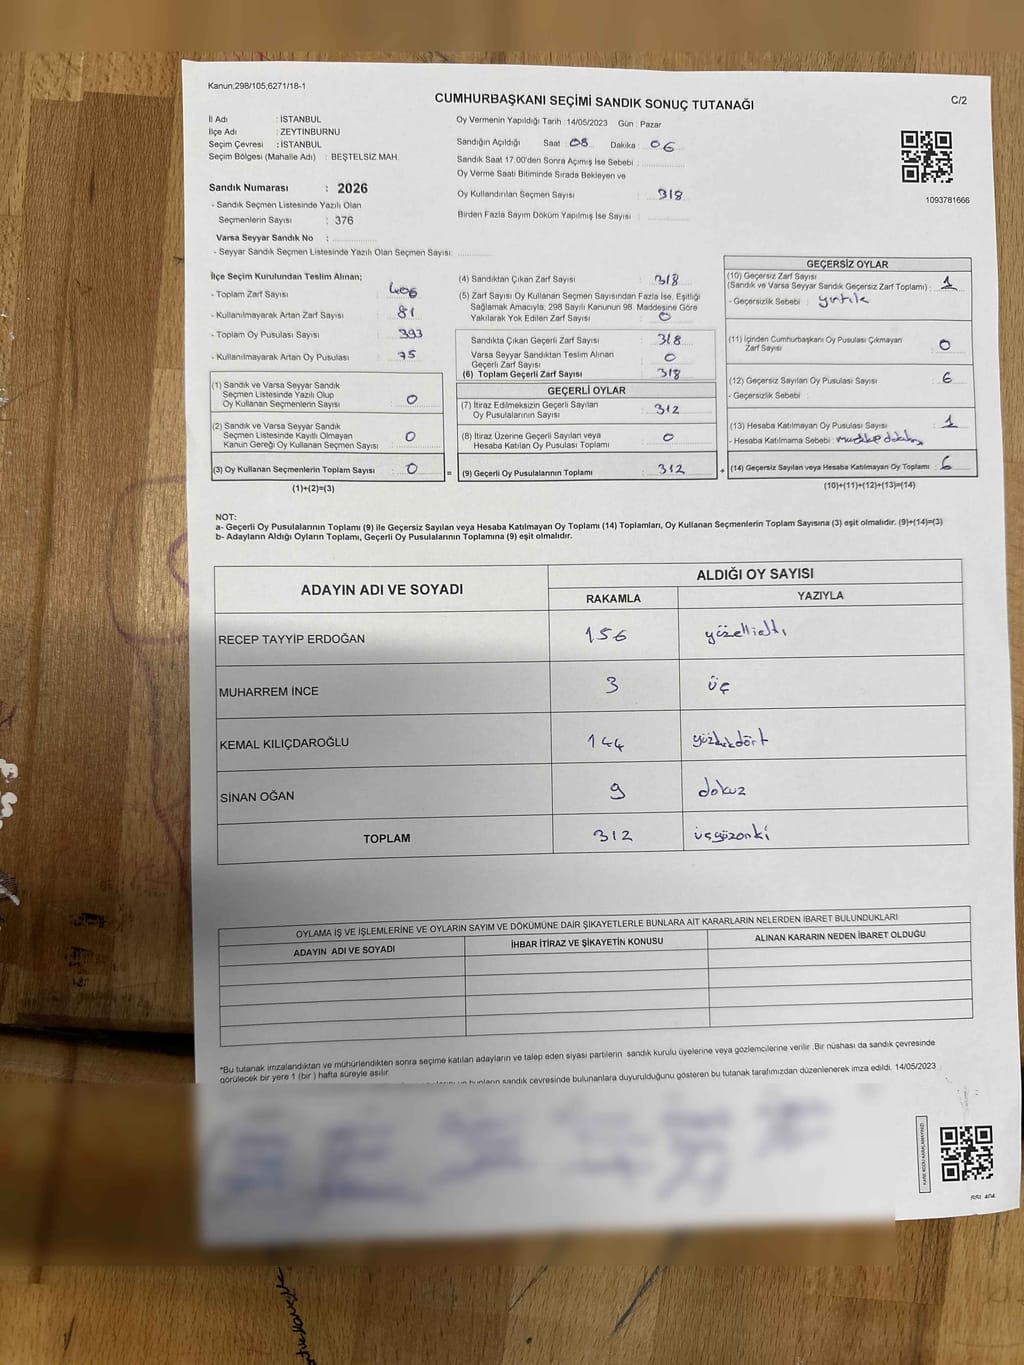 Kanun:298/105;6271/18-1
CUMHURBAŞKANI SEÇİMİ SANDIK SONUÇ TUTANAĞI
C/2
İl Adı : İSTANBUL
İlçe Adı : ZEYTİNBURNU
Seçim Çevresi : İSTANBUL
Seçim Bölgesi (Mahalle Adı) : BEŞTELSİZ MAH.
Sandık Numarası : 2026
- Sandık Seçmen Listesinde Yazılı Olan
Seçmenlerin Sayısı : 376
Varsa Seyyar Sandık No :
- Seyyar Sandık Seçmen Listesinde Yazılı Olan Seçmen Sayısı:
Oy Vermenin Yapıldığı Tarih :14/05/2023 Gün : Pazar
Sandığın Açıldığı Saat : 08 Dakika : 06
Sandık Saat 17.00'den Sonra Açılmış İse Sebebi :
Oy Verme Saati Bitiminde Sırada Bekleyen ve
Oy Kullandırılan Seçmen Sayısı : 318
Birden Fazla Sayım Döküm Yapılmış İse Sayısı :
1093781666
İlçe Seçim Kurulundan Teslim Alınan;
- Toplam Zarf Sayısı : 406
- Kullanılmayarak Artan Zarf Sayısı : 81
- Toplam Oy Pusulası Sayısı : 393
- Kullanılmayarak Artan Oy Pusulası : 75
(1) Sandık ve Varsa Seyyar Sandık
Seçmen Listesinde Yazılı Olup
Oy Kullanan Seçmenlerin Sayısı : 0
(2) Sandık ve Varsa Seyyar Sandık
Seçmen Listesinde Kayıtlı Olmayan
Kanun Gereği Oy Kullanan Seçmen Sayısı : 0
(3) Oy Kullanan Seçmenlerin Toplam Sayısı : 0
(1)+(2)=(3)
(4) Sandıktan Çıkan Zarf Sayısı : 318
(5) Zarf Sayısı Oy Kullanan Seçmen Sayısından Fazla İse, Eşitliği
Sağlamak Amacıyla, 298 Sayılı Kanunun 98. Maddesine Göre
Yakılarak Yok Edilen Zarf Sayısı : 0
Sandıkta Çıkan Geçerli Zarf Sayısı : 318
Varsa Seyyar Sandıktan Teslim Alınan
Geçerli Zarf Sayısı : 0
(6) Toplam Geçerli Zarf Sayısı : 318
=
GEÇERLİ OYLAR
(7) İtiraz Edilmeksizin Geçerli Sayılan
Oy Pusulalarının Sayısı : 312
(8) İtiraz Üzerine Geçerli Sayılan veya
Hesaba Katılan Oy Pusulası Toplamı : 0
(9) Geçerli Oy Pusulalarının Toplamı : 312
+
GEÇERSİZ OYLAR
(10) Geçersiz Zarf Sayısı
(Sandık ve Varsa Seyyar Sandık Geçersiz Zarf Toplamı) : 1
- Geçersizlik Sebebi : yırtık
(11) İçinden Cumhurbaşkanı Oy Pusulası Çıkmayan
Zarf Sayısı : 0
(12) Geçersiz Sayılan Oy Pusulası Sayısı : 6
- Geçersizlik Sebebi :
(13) Hesaba Katılmayan Oy Pusulası Sayısı : 1
- Hesaba Katılmama Sebebi :
(14) Geçersiz Sayılan veya Hesaba Katılmayan Oy Toplamı : 6
(10)+(11)+(12)+(13)=(14)
NOT:
a- Geçerli Oy Pusulalarının Toplamı (9) ile Geçersiz Sayılan veya Hesaba Katılmayan Oy Toplamı (14) Toplamları, Oy Kullanan Seçmenlerin Toplam Sayısına (3) eşit olmalıdır. (9)+(14)=(3)
b- Adayların Aldığı Oyların Toplamı, Geçerli Oy Pusulalarının Toplamına (9) eşit olmalıdır.
ADAYIN ADI VE SOYADI
ALDIĞI OY SAYISI
RAKAMLA YAZIYLA
RECEP TAYYİP ERDOĞAN 156 yüzellialtı
MUHARREM İNCE 3 üç
KEMAL KILIÇDAROĞLU 144 yüzkırkdört
SİNAN OĞAN 9 dokuz
TOPLAM 312 üçyüzoniki
OYLAMA İŞ VE İŞLEMLERİNE VE OYLARIN SAYIM VE DÖKÜMÜNE DAİR ŞİKAYETLERLE BUNLARA AİT KARARLARIN NELERDEN İBARET BULUNDUKLARI
ADAYIN ADI VE SOYADI İHBAR İTİRAZ VE ŞİKAYETİN KONUSU ALINAN KARARIN NEDEN İBARET OLDUĞU
*Bu tutanak imzalandıktan ve mühürlendikten sonra seçime katılan adayların ve talep eden siyasi partilerin sandık kurulu üyelerine veya gözlemcilerine verilir .Bir nüshası da sandık çevresinde
görülecek bir yere 1 (bir ) hafta süreyle asılır.
bunların sandık çevresinde bulunanlara duyurulduğunu gösteren bu tutanak tarafımızdan düzenlenerek imza edildi. 14/05/2023